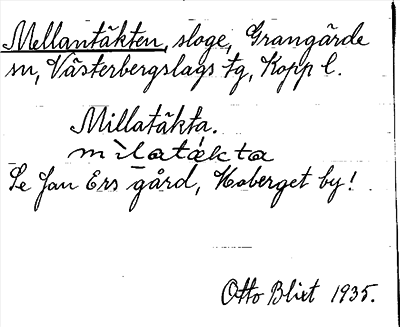 Mellantäkten, sloge, Grangärde
sn, Västerbergslags tg, Kopp l.
Millatäkta.
mìlatákta
Se Jan Ers gård, Hoberget by!
Otto Blixt 1935.